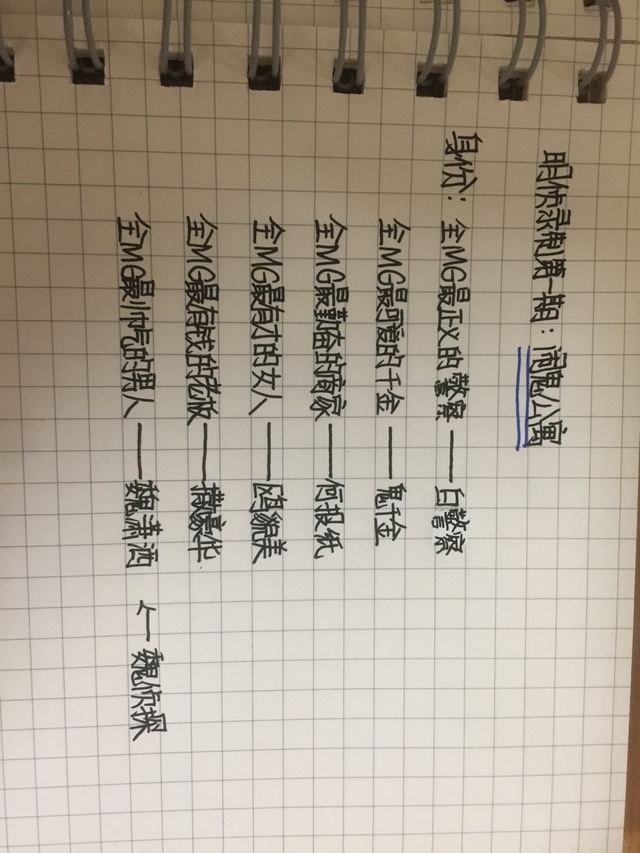 明侦录制第一期：闹鬼公寓
身份：全MG最正义的警察——白警察
全MG最可爱的千金——鬼千金
全MG最勤奋的商家——何报纸
全MG最有才的女人——鸥貌美
全MG最有钱的老板——撒豪华
全MG最帅气的男人——魏潇洒 ←魏侦探